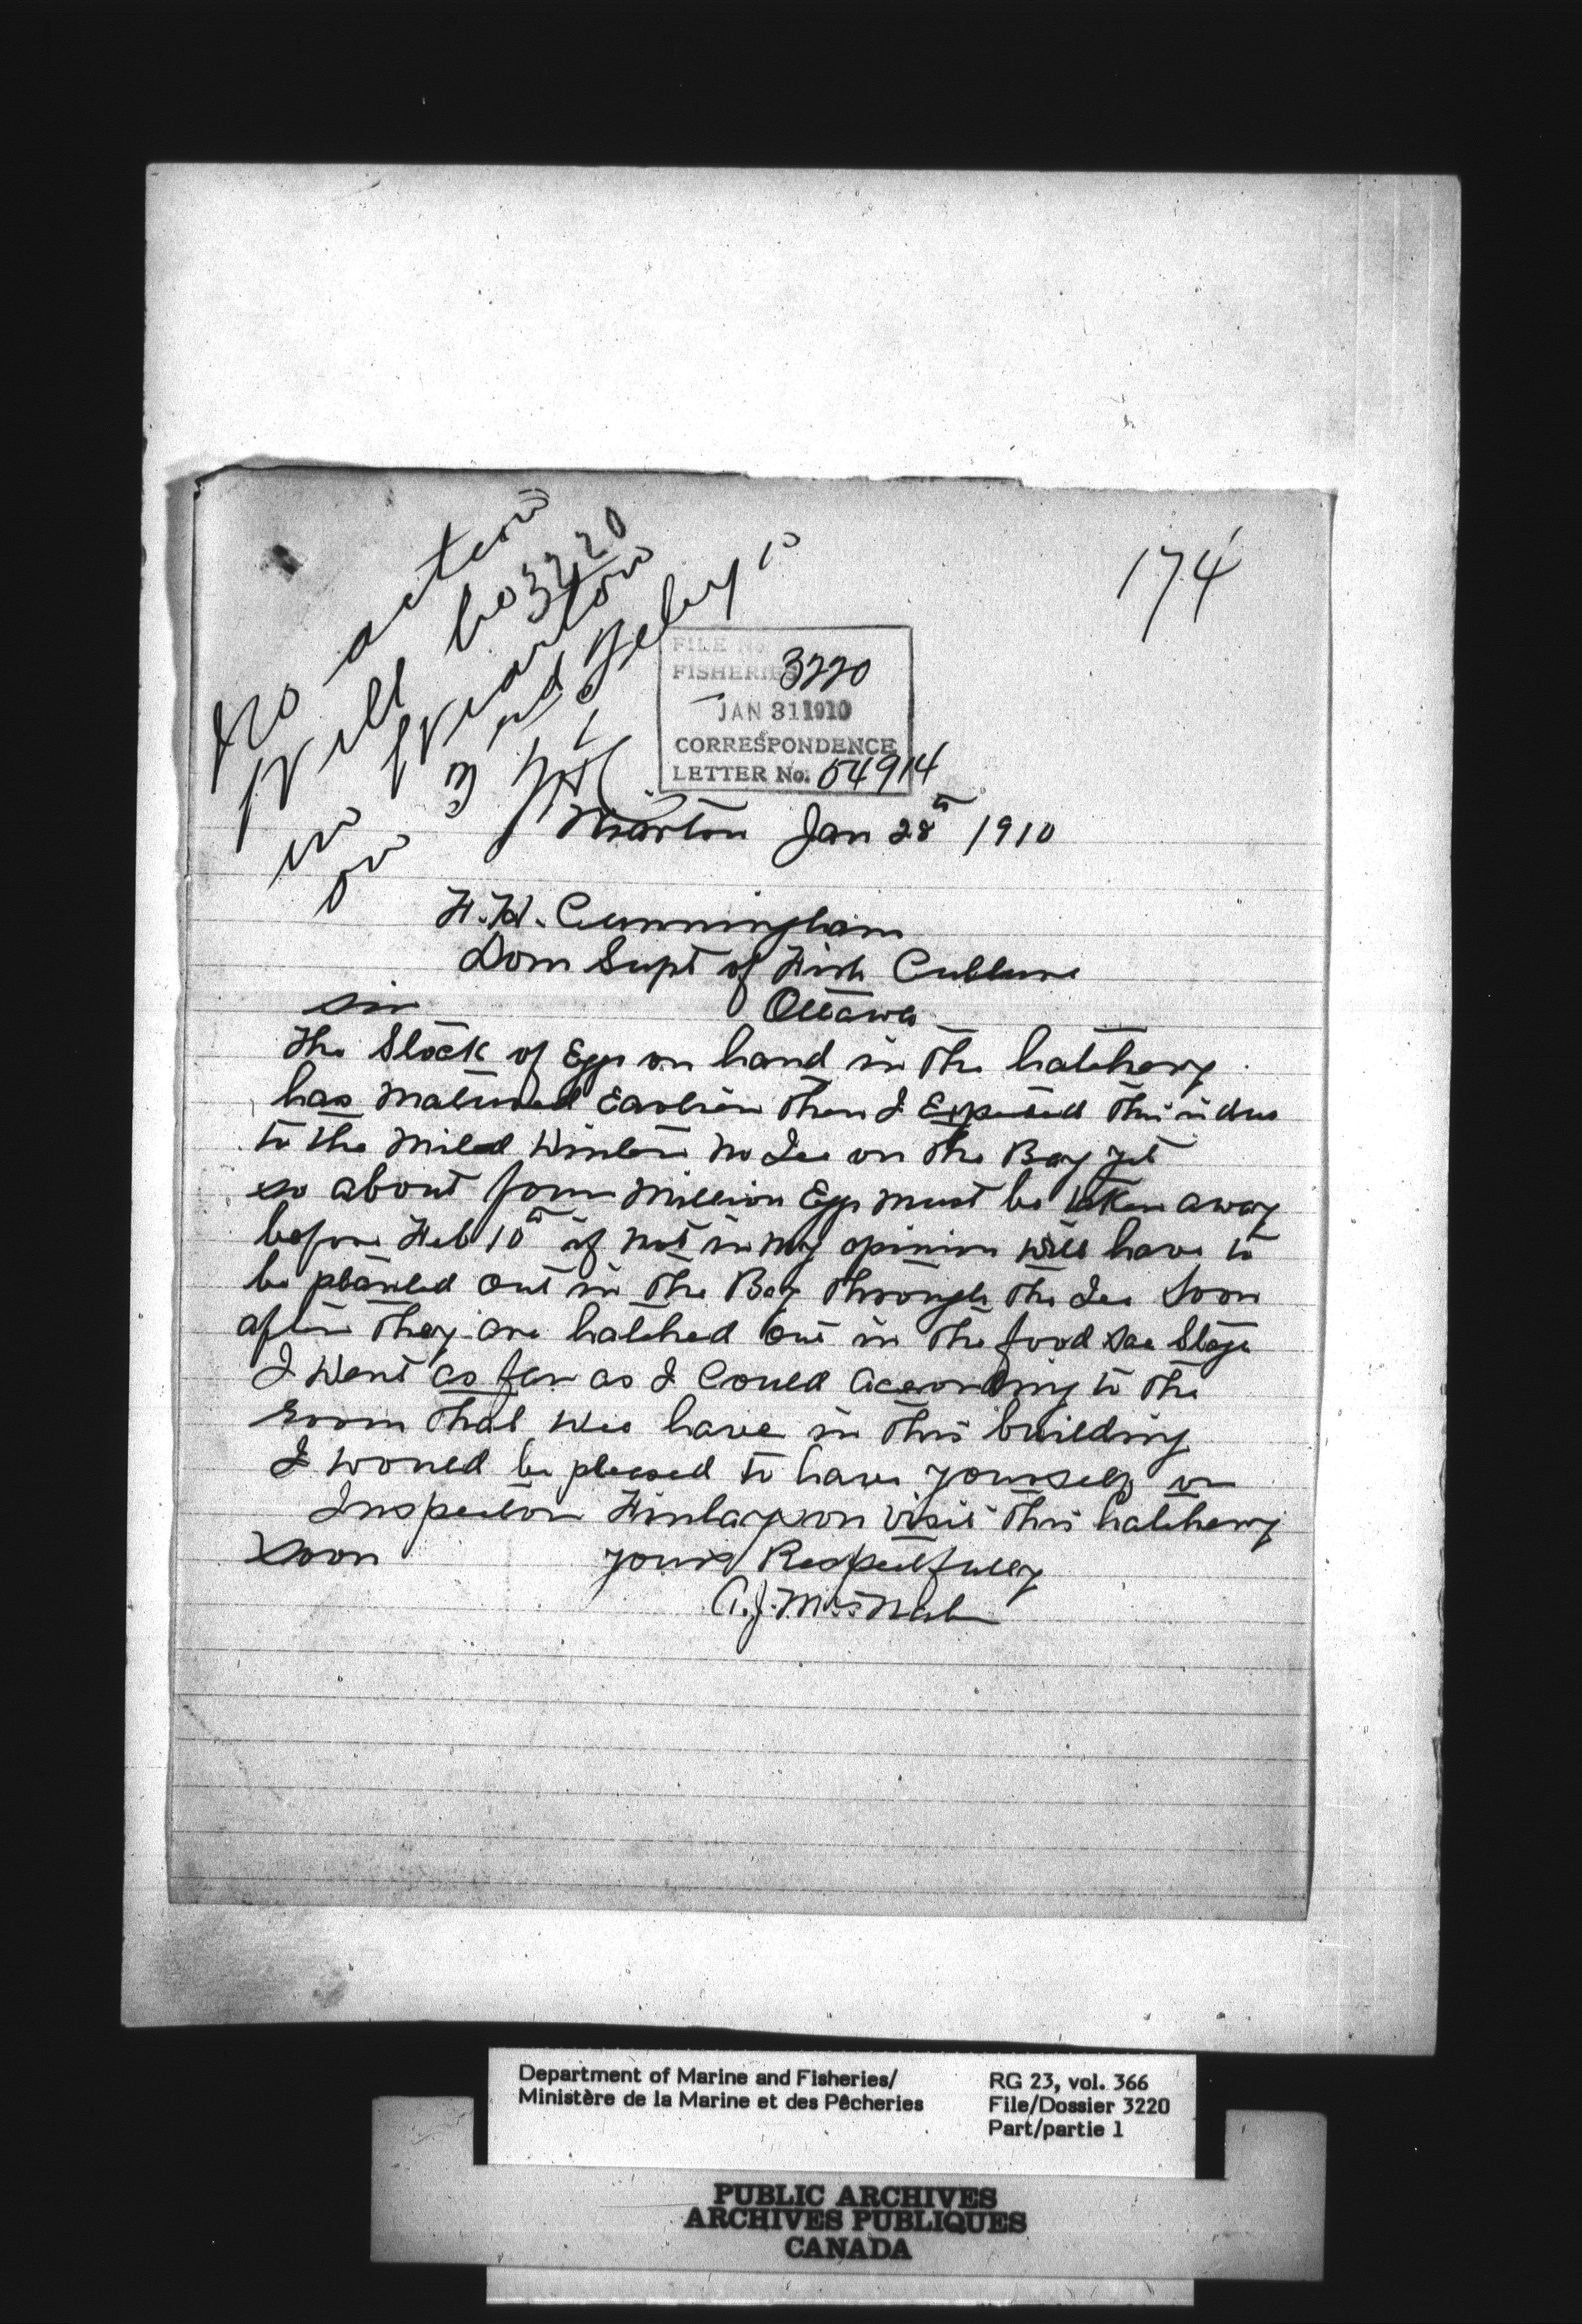 No action
Will be 3220
in Wiarton
on 3rd Feby 10
174
FILE No.
FISHERIES 3220
JAN 31 1910
CORRESPONDENCE
LETTER No. 54914
Wiarton Jan 28th 1910
F.H. Cunningham
Dom Supt of Fish Culture
Sir Ottawa
The Stock of Eggs on hand in the hatchery
has matured Earlier than I Expected this is due
to the mild Winter no Ice on the Bay yet
so about four million Eggs must be taken away
before Feb 10th if not in my opinion will have to
be planted out in the Bay through the Ice Soon
after they are hatched out in the food sac Stage
I Went as far as I Could according to the
room that wee have in this building
I would be pleased to have yourself or
Inspector Finlayson visit this hatchery
soon yours Respectfully
A.J. McNab
Department of Marine and Fisheries/
Ministère de la Marine et des Pêcheries
RG 23, vol. 366
File/Dossier 3220
Part/partie 1
PUBLIC ARCHIVES
ARCHIVES PUBLIQUES
CANADA